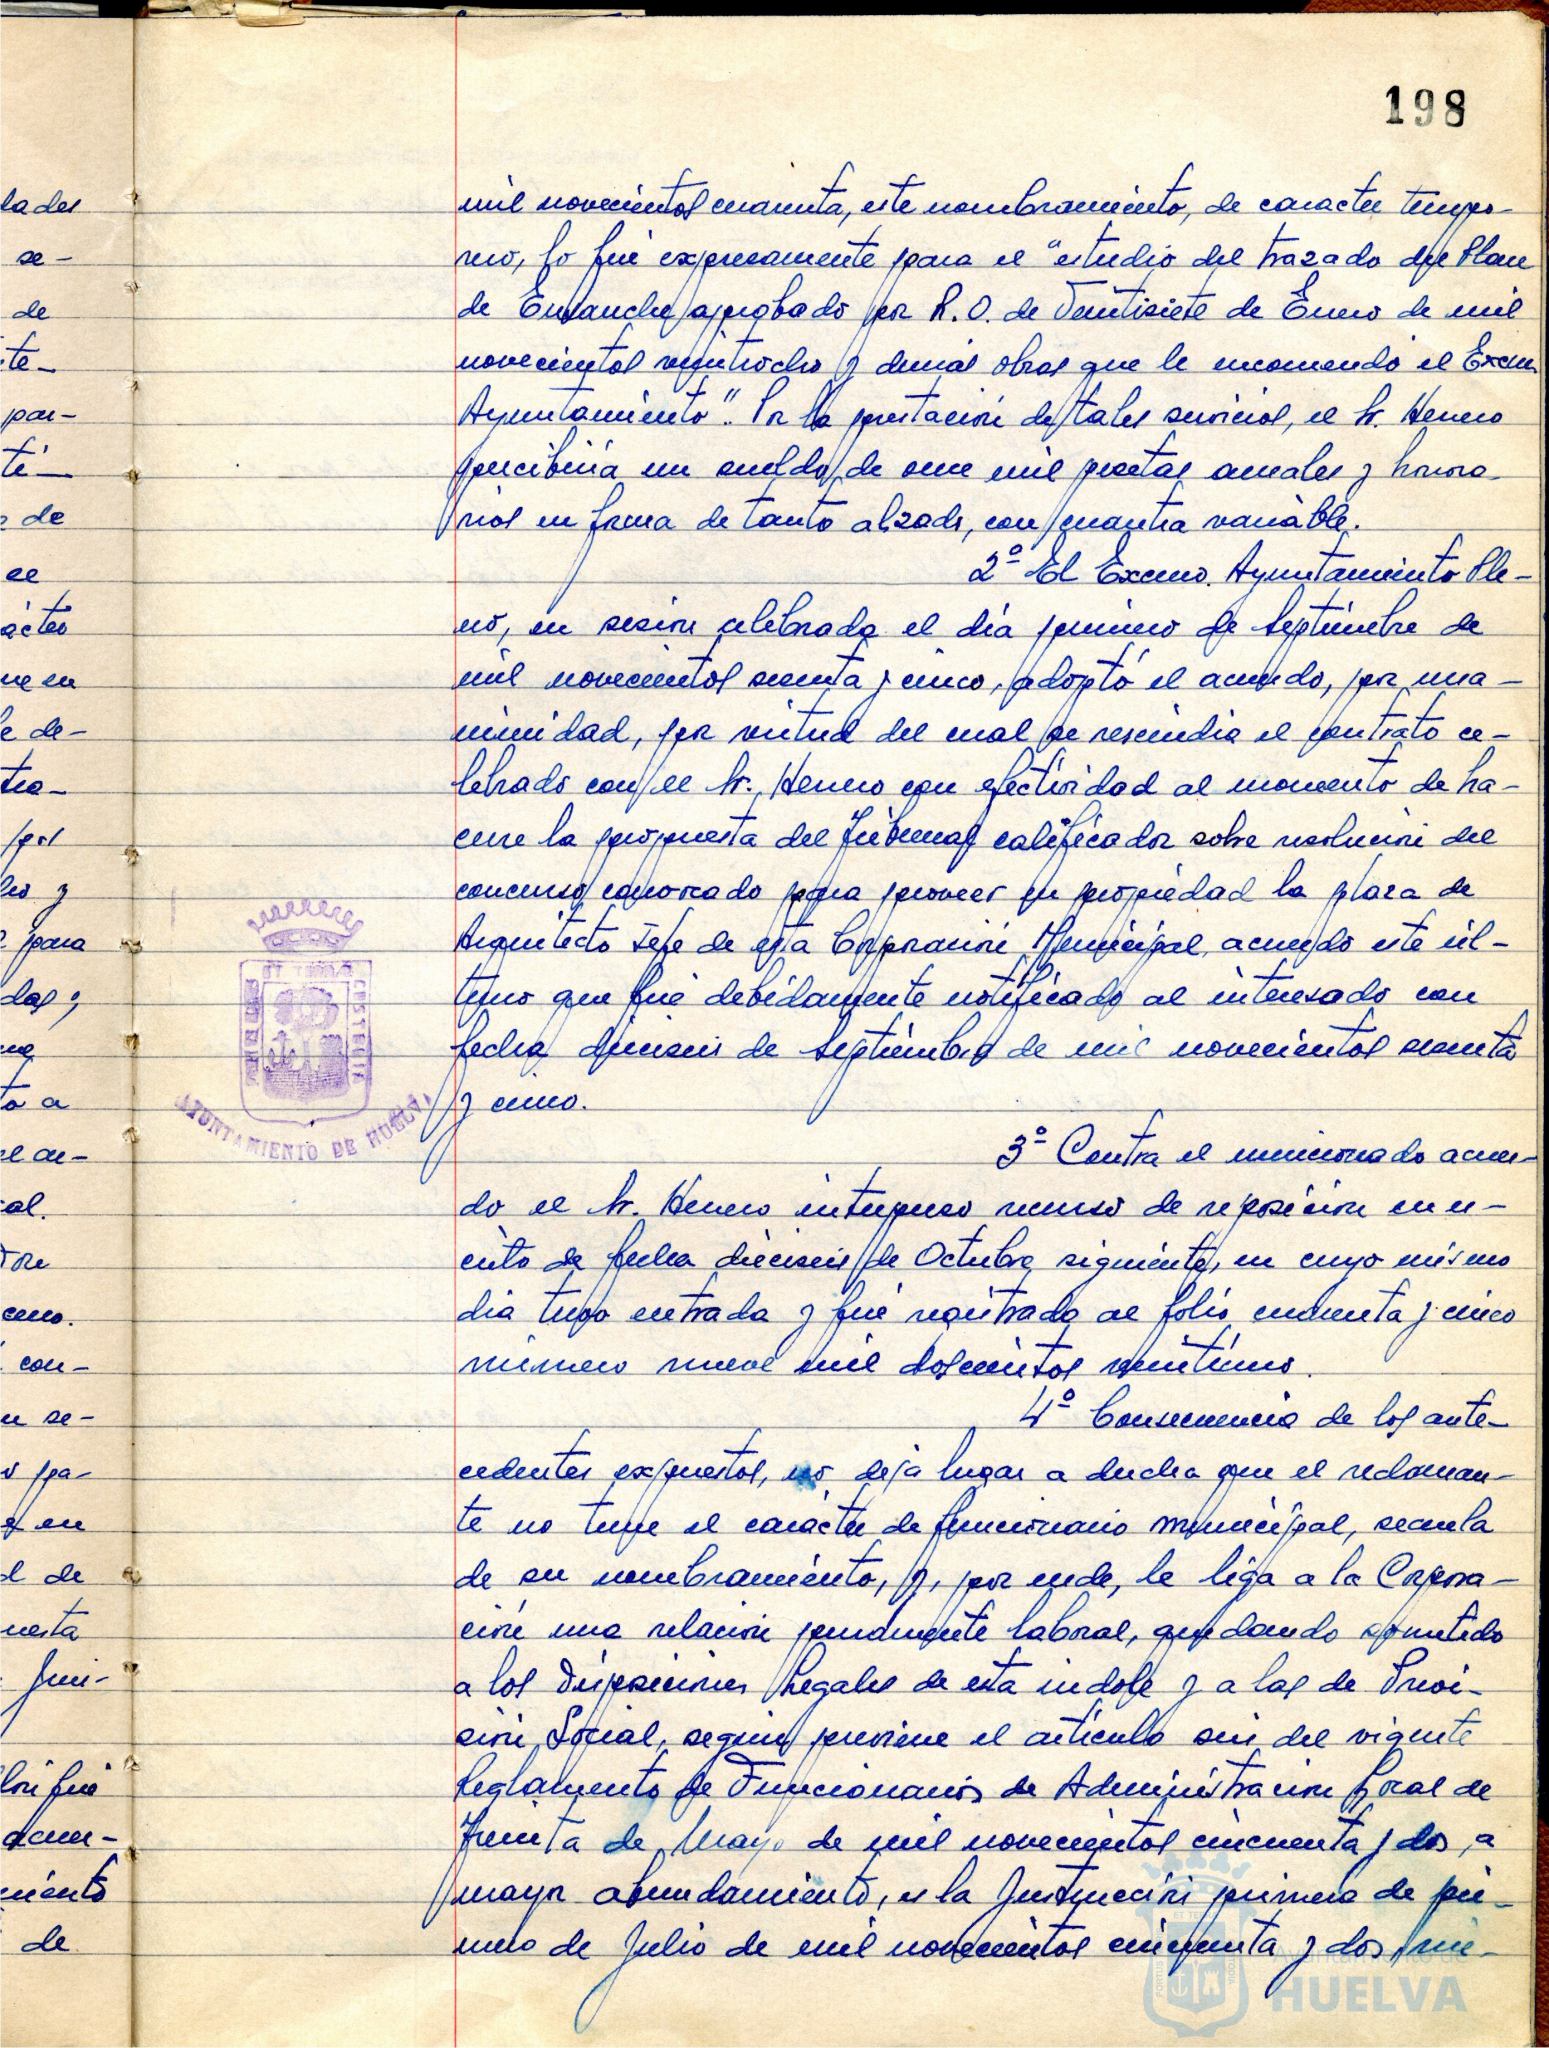 198
mil novecientos cuarenta, este nombramiento, de caracter tempo-
rero, lo fué expresamente para el "estudio del trazado del Plan
de Ensanche aprobado por R. O. de Veintisiete de Enero de mil
novecientos veintiocho y demás obras que le encomendó el Excmo
Ayuntamiento". Por la prestación de tales servicios, el Sr. Herrero
percibiria un sueldo de once mil pesetas anuales y honora-
rios en forma de tanto alzado, con cuantia variable.
2º El Excmo. Ayuntamiento Ple-
no, en sesión celebrada el día primero de Septiembre de
mil novecientos sesenta y cinco, adoptó el acuerdo, por una-
nimidad, por virtud del cual se rescindia el contrato ce-
lebrado con el Sr. Herrero con efectividad al momento de ha-
cerse la propuesta del Tribunal calificador sobre resolución del
concurso convocado para proveer en propiedad la plaza de
Arquitecto Jefe de esta Corporación Municipal, acuerdo este úl-
timo que fué debidamente notificado al interesado con
fecha dieciseis de Septiembre de mil novecientos sesenta
y cinco.
3º Contra el mencionado acuer-
do el Sr. Herrero interpuso recurso de reposición en es-
crito de fecha dieciseis de Octubre siguiente, en cuyo mismo
dia tuvo entrada y fué registrado al folio cincuenta y cinco
número nueve mil doscientos veintiuno.
4º Consecuencia de los ante-
cedentes expuestos, no deja lugar a duda que el reclaman-
te no tiene el carácter de funcionario municipal, secuela
de su nombramiento, y, por ende, le liga a la Corpora-
ción una relación puramente laboral, quedando sometido
a los Disposiciones Legales de esta indole y a las de Previ-
sión Social, según previene el artículo seis del vigente
Reglamento de Funcionarios de Administración Local de
Treinta de Mayo de mil novecientos cincuenta y dos, a
mayor abundamiento, es la Instrucción primera de pri-
mero de Julio de mil novecientos cincuenta y dos,
AYUNTAMIENTO DE HUELVA
Ayuntamiento de
HUELVA